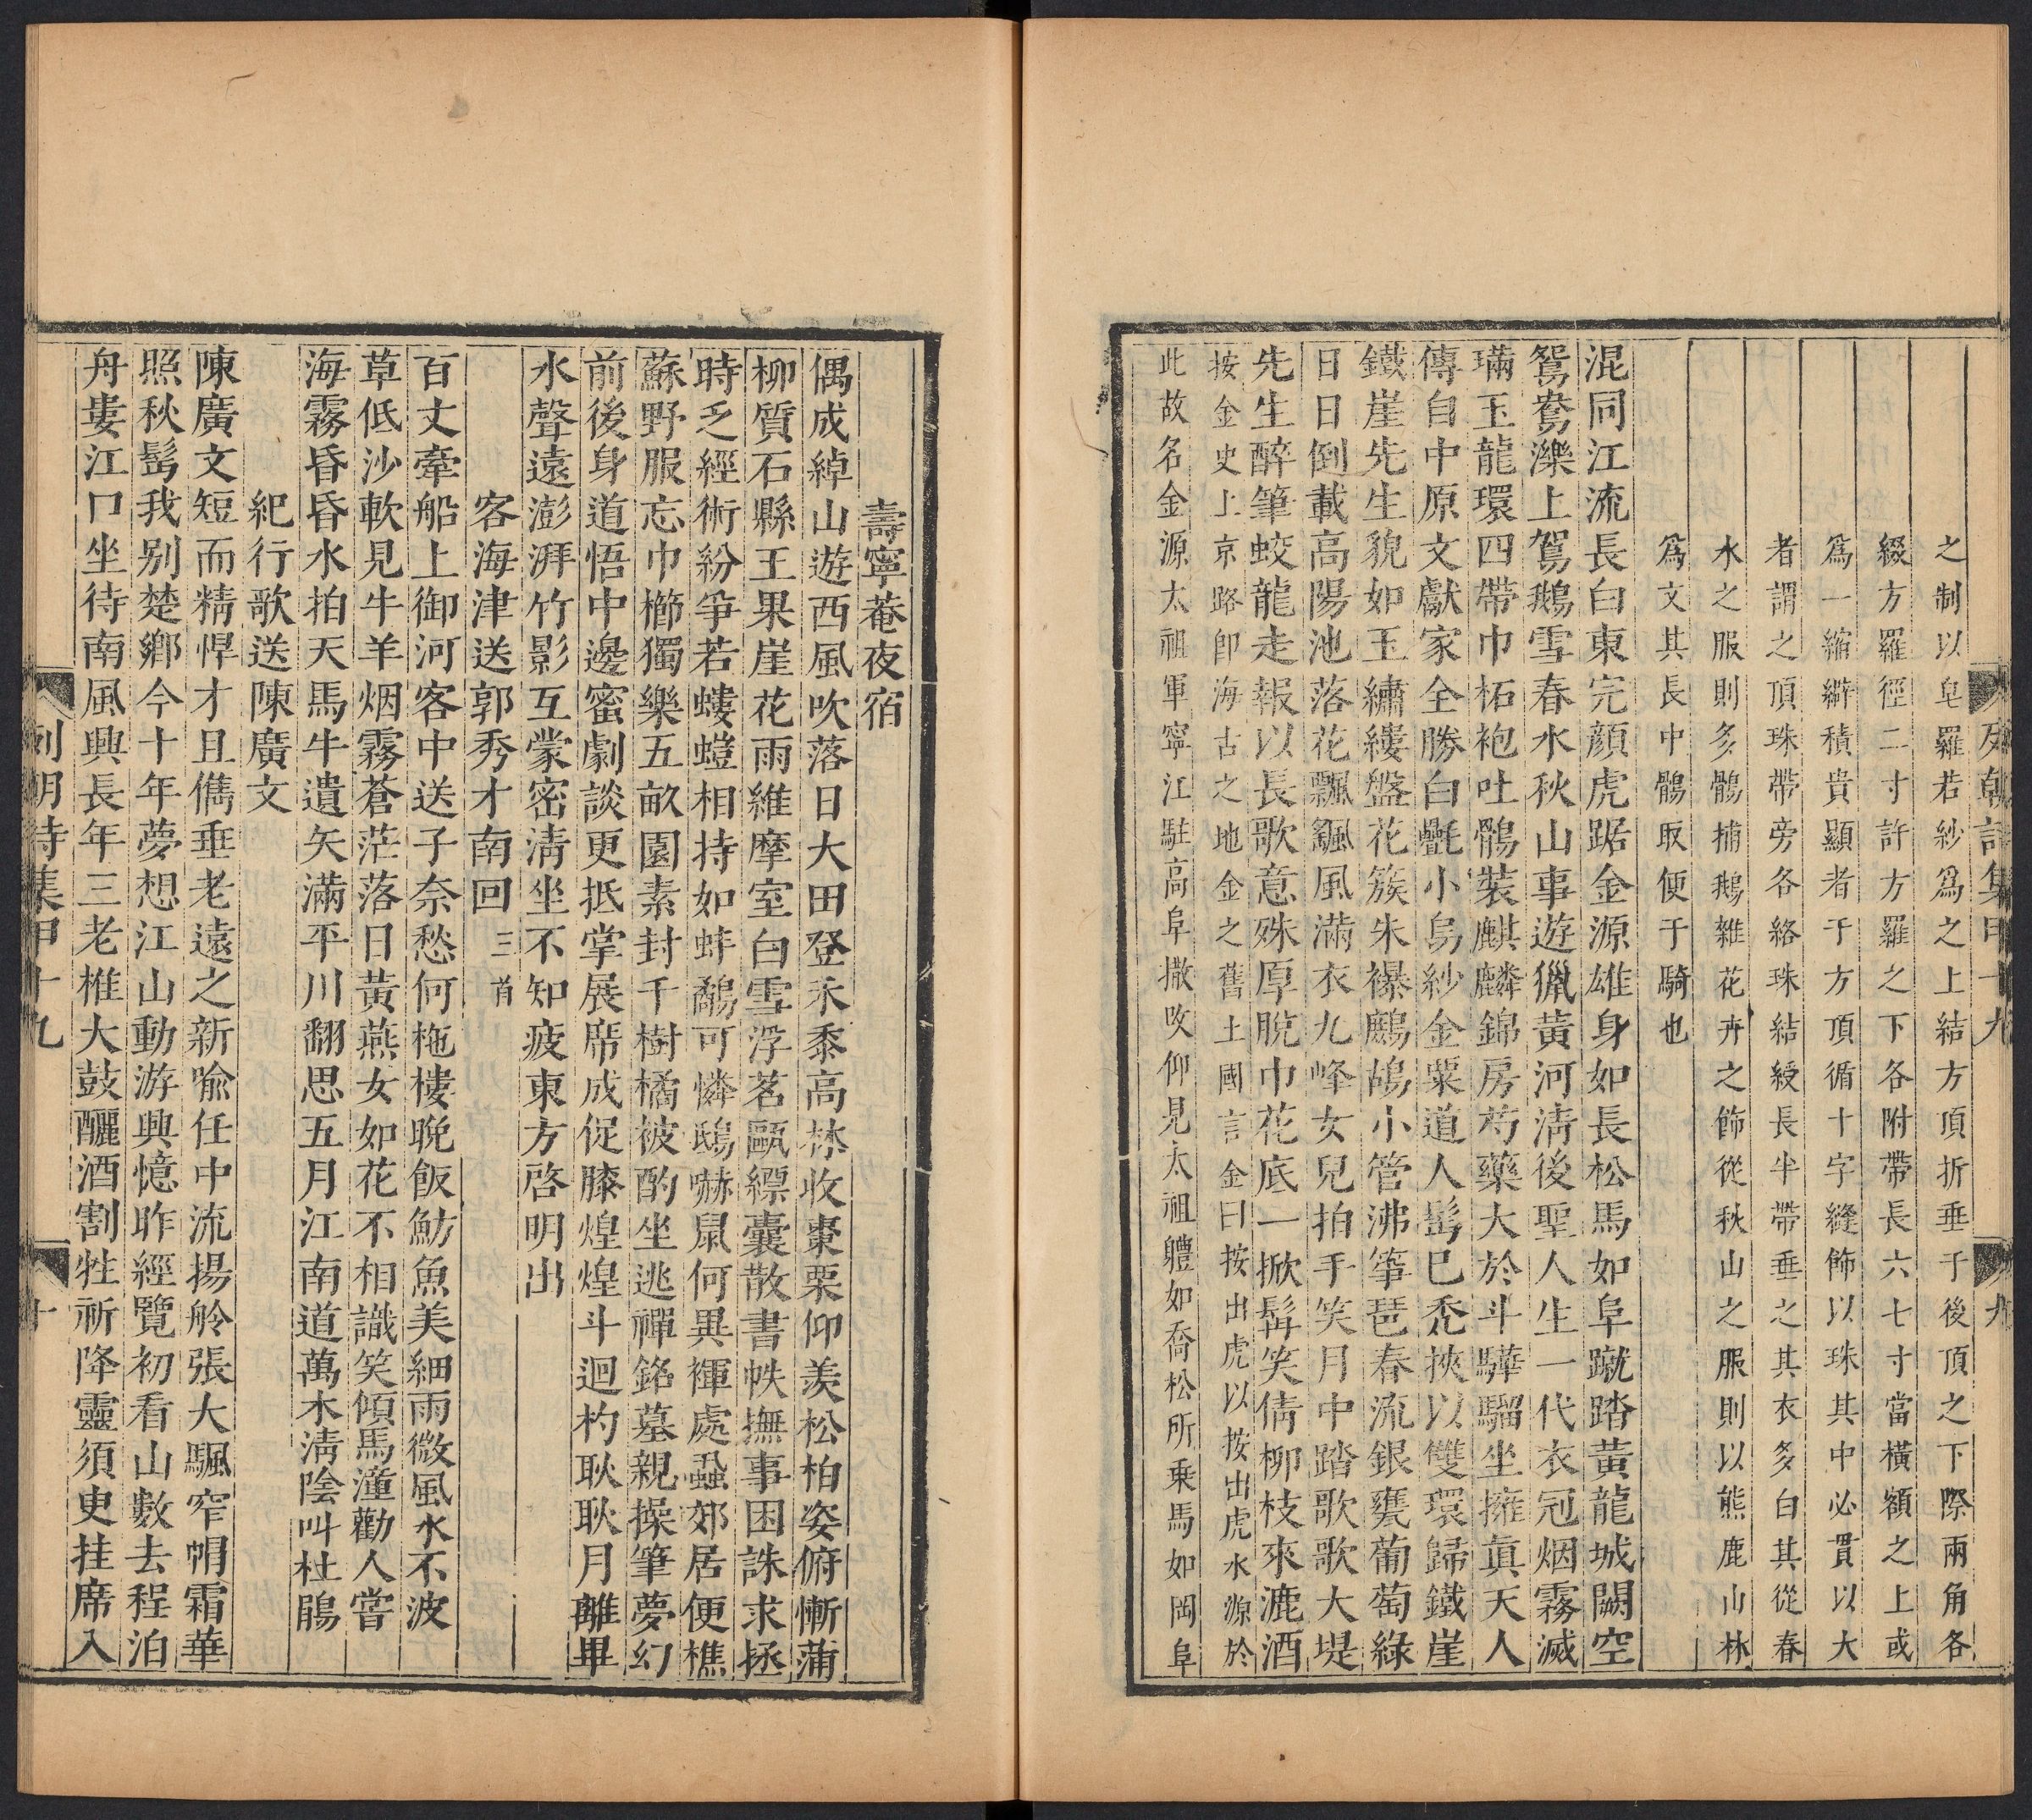 列朝詩集甲十九
九
之制以皂羅若紗爲之上結方頂折垂于後頂之下際兩角各
綴方羅徑二寸許方羅之下各附帶長六七寸當橫額之上或
爲一縮襞積貴顯者于方頂循十字縫飾以珠其中必貫以大
者謂之頂珠帶旁各絡珠結綬長半帶垂之其衣多白其從春
水之服則多鶻捕鵝雜花卉之飾從秋山之服則以熊鹿山林
爲文其長中骭取便于騎也
混同江流長白東完顔虎踞金源雄身如長松馬如阜蹴踏黃龍城闕空
鴛鴦濼上駕鵝雪春水秋山事遊獵黃河清後聖人生一代衣冠烟霧滅
璊玉龍環四帶巾柘袍吐鶻裝麒麟錦房芍藥大於斗驊騮坐擁眞天人
傳自中原文獻家全勝白氎小烏紗金粟道人髩巳禿挾以雙環歸鐵崖
鐵崖先生貌如玉繡縷盤花簇朱襮鷓鴣小管沸筝琶春流銀甕葡萄綠
日日倒載高陽池落花飄颻風滿衣九峰女兒拍手笑月中踏歌歌大堤
先生醉筆蛟龍走報以長歌意殊厚脫巾花底一掀髯笑倩柳枝來漉酒
按金史上京路卽海古之地金之舊土國言金曰按出虎以按出虎水源於
此故名金源太祖軍寧江駐高阜撒㕮仰見太祖軆如喬松所乗馬如岡阜
壽寧菴夜宿
偶成綽山遊西風吹落日大田登禾黍高林收棗栗仰羨松柏姿俯慚蒲
柳質石縣王果崖花雨維摩室白雪浮茗甌縹囊散書帙撫事困誅求拯
時乏經術紛爭若螻螘相持如蚌鷸可憐鴟嚇鼠何異褌處蝨郊居便樵
蘇野服忘巾櫛獨樂五畝園素封千樹橘被酌坐逃禪銘墓親操筆夢幻
前後身道悟中邊蜜劇談更抵掌展席成促膝煌煌斗迴杓耿耿月離畢
水聲遠澎湃竹影互蒙密淸坐不知疲東方啓明出
客海津送郭秀才南回三首
百丈牽船上御河客中送子奈愁何柂樓晚飯魴魚美細雨微風水不波
草低沙軟見牛羊烟霧蒼茫落日黃燕女如花不相識笑傾馬湩勸人嘗
海霧昏昏水拍天馬牛遺矢滿平川翻思五月江南道萬木淸陰叫杜鵑
紀行歌送陳廣文
陳廣文短而精悍才且儁垂老遠之新喻任中流揚舲張大颿窄帽霜華
照秋髩我别楚鄉今十年夢想江山動游興憶昨經覽初看山數去程泊
舟婁江口坐待南風興長年三老椎大鼓釃酒割牲祈降靈須臾挂席入
列朝詩集甲十九
十